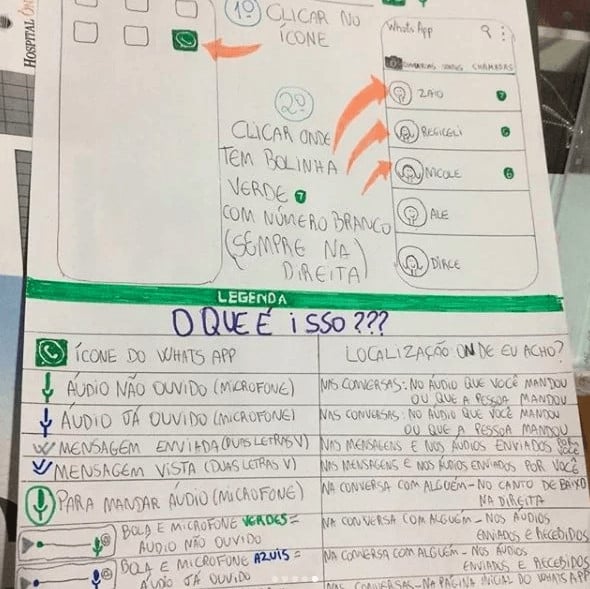 HOSPITAL
1º CLICAR NO
ÍCONE
WhatsApp
CONVERSAS STATUS CHAMADAS
ZAIO 7
REGICELI
NICOLE 6
ALE
DIRCE
2º
CLICAR ONDE
TEM BOLINHA
VERDE 7
COM NÚMERO BRANCO
(SEMPRE NA
DIREITA)
LEGENDA
O QUE É ISSO???
ÍCONE DO WHATS APP
LOCALIZAÇÃO ONDE EU ACHO?
ÁUDIO NÃO OUVIDO (MICROFONE)
NAS CONVERSAS: NO ÁUDIO QUE VOCÊ MANDOU
OU QUE A PESSOA MANDOU
ÁUDIO JÁ OUVIDO (MICROFONE)
NAS CONVERSAS: NO ÁUDIO QUE VOCÊ MANDOU
OU QUE A PESSOA MANDOU
VV MENSAGEM ENVIADA (DUAS LETRAS V)
NAS MENSAGENS E NOS ÁUDIOS ENVIADOS POR VOCÊ
VV MENSAGEM VISTA (DUAS LETRAS V)
NAS MENSAGENS E NOS ÁUDIOS ENVIADOS POR VOCÊ
PARA MANDAR ÁUDIO (MICROFONE)
NA CONVERSA COM ALGUÉM - NO CANTO DE BAIXO
NA DIREITA
BOLA E MICROFONE VERDES =
ÁUDIO NÃO OUVIDO
NA CONVERSA COM ALGUÉM - NOS ÁUDIOS
ENVIADOS E RECEBIDOS
BOLA E MICROFONE AZUIS =
ÁUDIO JÁ OUVIDO
NA CONVERSA COM ALGUÉM - NOS ÁUDIOS
ENVIADOS E RECEBIDOS
NAS CONVERSAS - NA PÁGINA INICIAL DO WHATSAPP